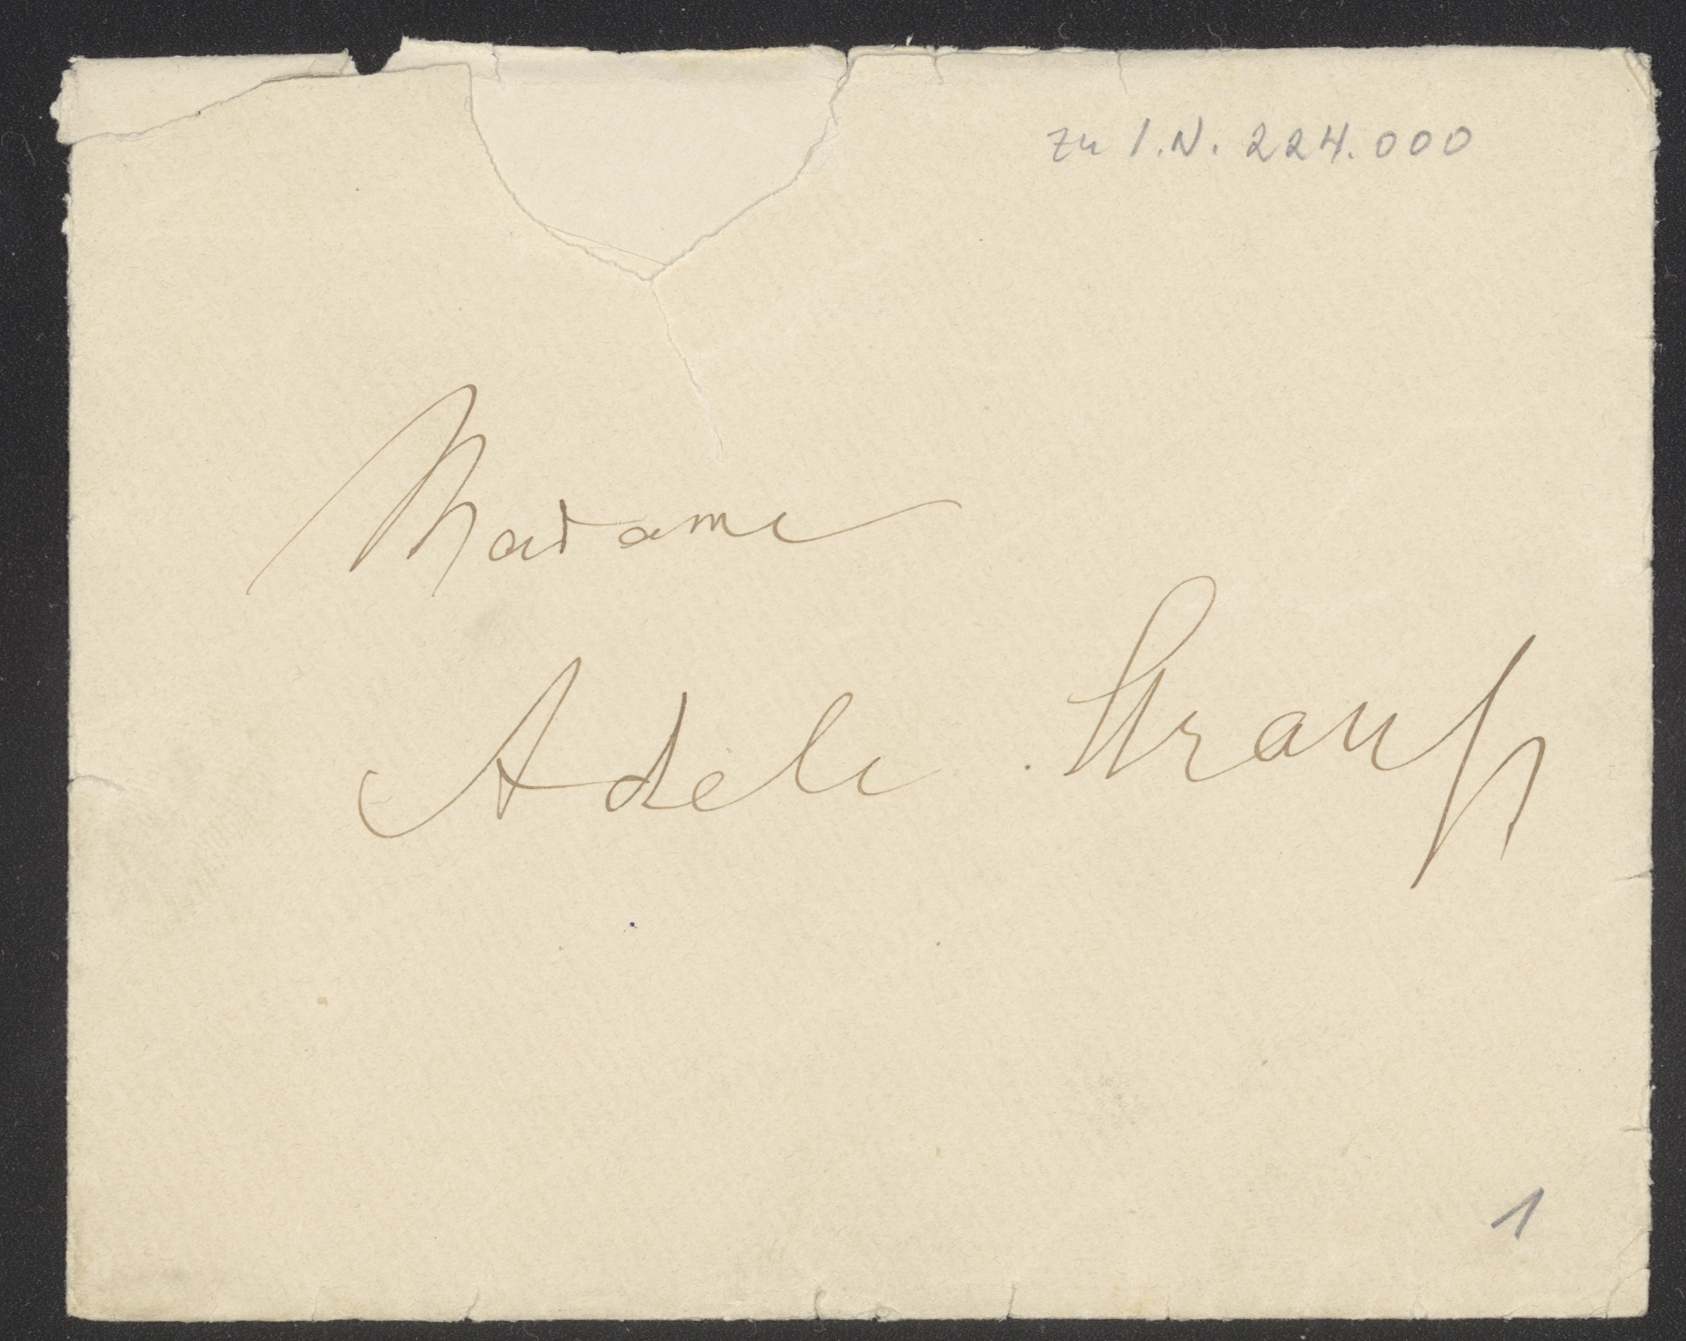 zu I.N. 224.000
Madame
Adele Strauß
1